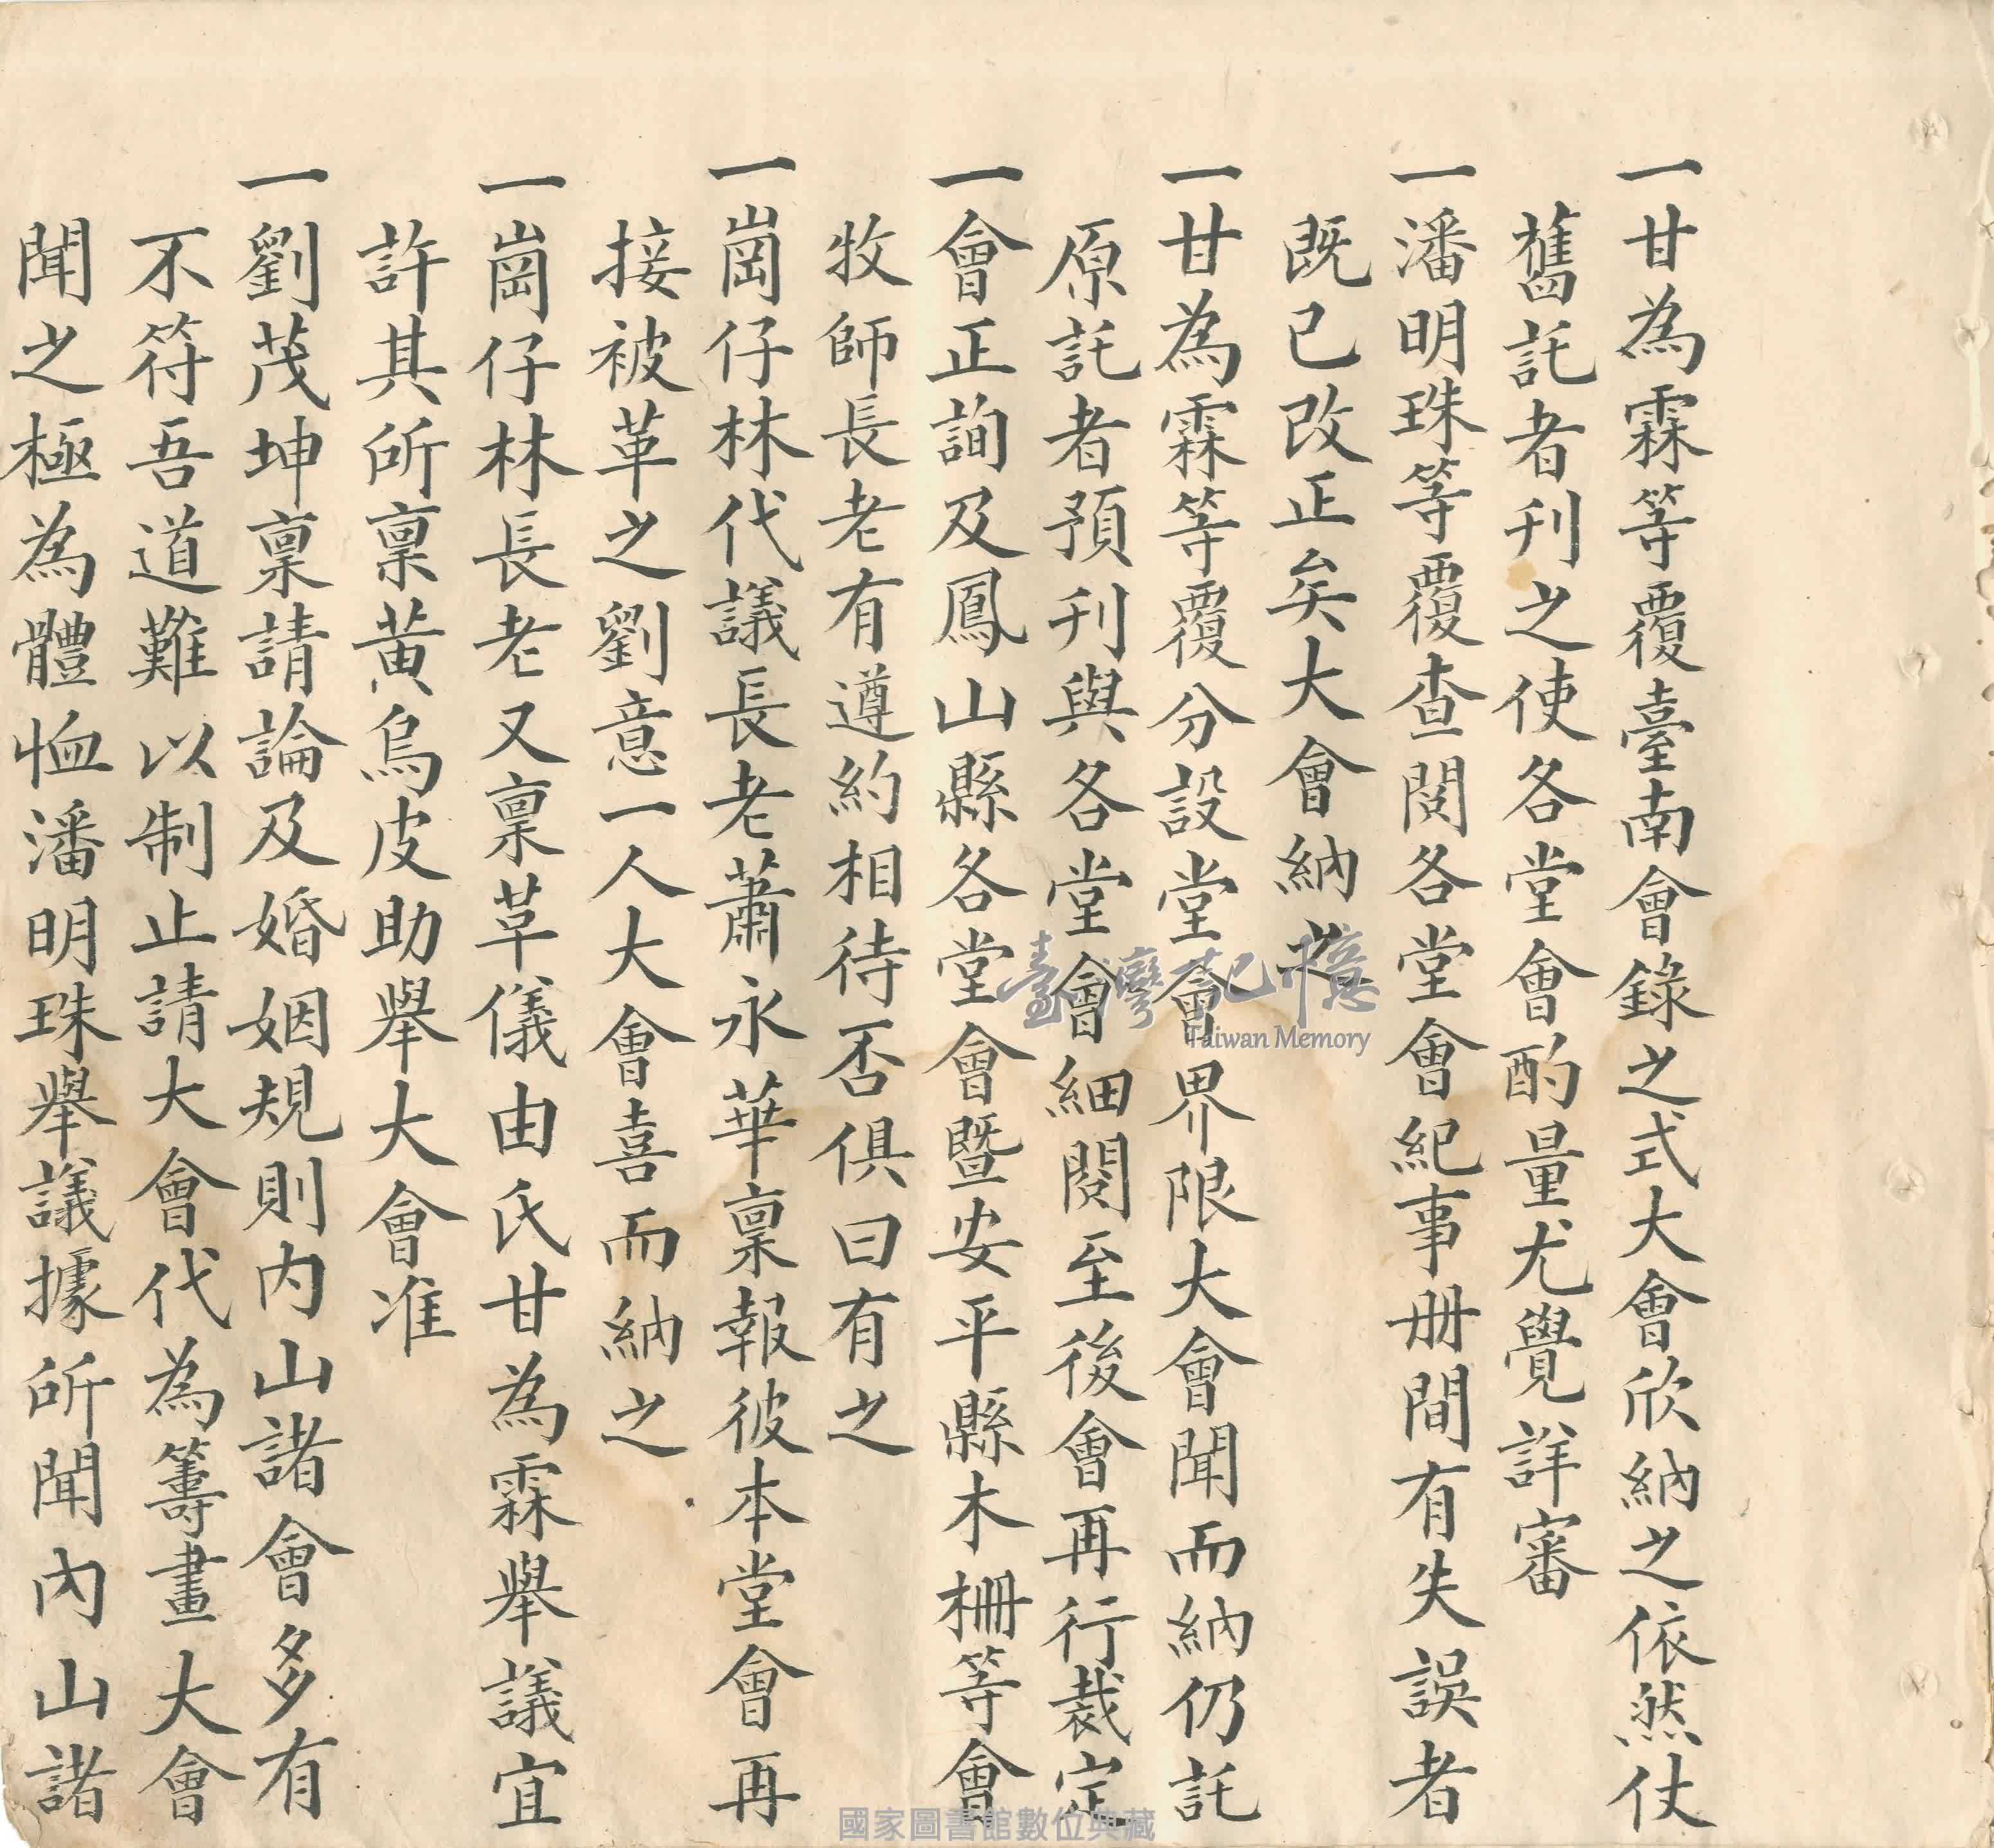 一甘為霖等覆臺南會錄之式大會欣納之依然仗
舊託者刊之使各堂會酌量尤覺詳審
一潘明珠等覆查閱各堂會紀事册間有失誤者
既已改正矣大會納之
一甘為霖等覆分設堂會界限大會聞而納仍託
原託者預刊與各堂會細閱至後會再行裁定
一會正詢及鳳山縣各堂會暨安平縣木柵等會
牧師長老有遵約相待否俱曰有之
一崗仔林代議長老蕭永華稟報彼本堂會再
接被革之劉意一人大會喜而納之
一崗仔林長老又稟草儀由氏甘為霖舉議宜
許其所稟黃烏皮助舉大會准
一劉茂坤稟請論及婚姻規則内山諸會多有
不符吾道難以制止請大會代為籌畫大會
聞之極為體恤潘明珠舉議據所聞內山諸
臺灣記憶
Taiwan Memory
國家圖書館數位典藏